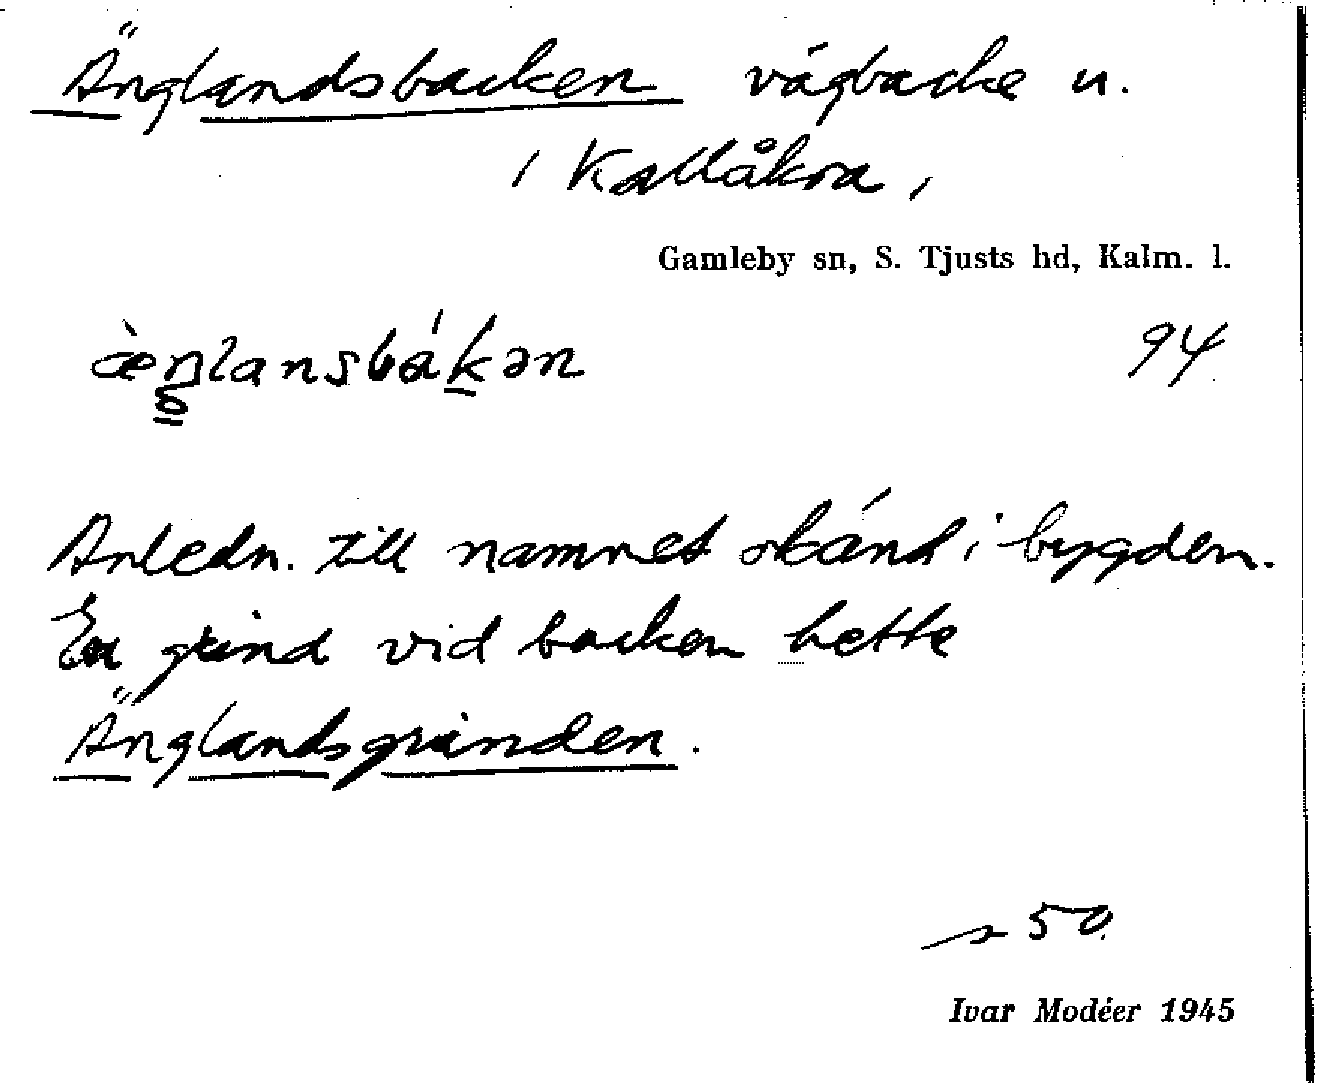 Änglandsbacken vägbacke u.
i Kallåkra,
Gamleby sn, S. Tjusts hd, Kalm. l.
94
Anledn. till namnet okänd i bygden.
En grind vid backen hette
Änglandsgrinden.
s 50
Ivar Modéer 1945